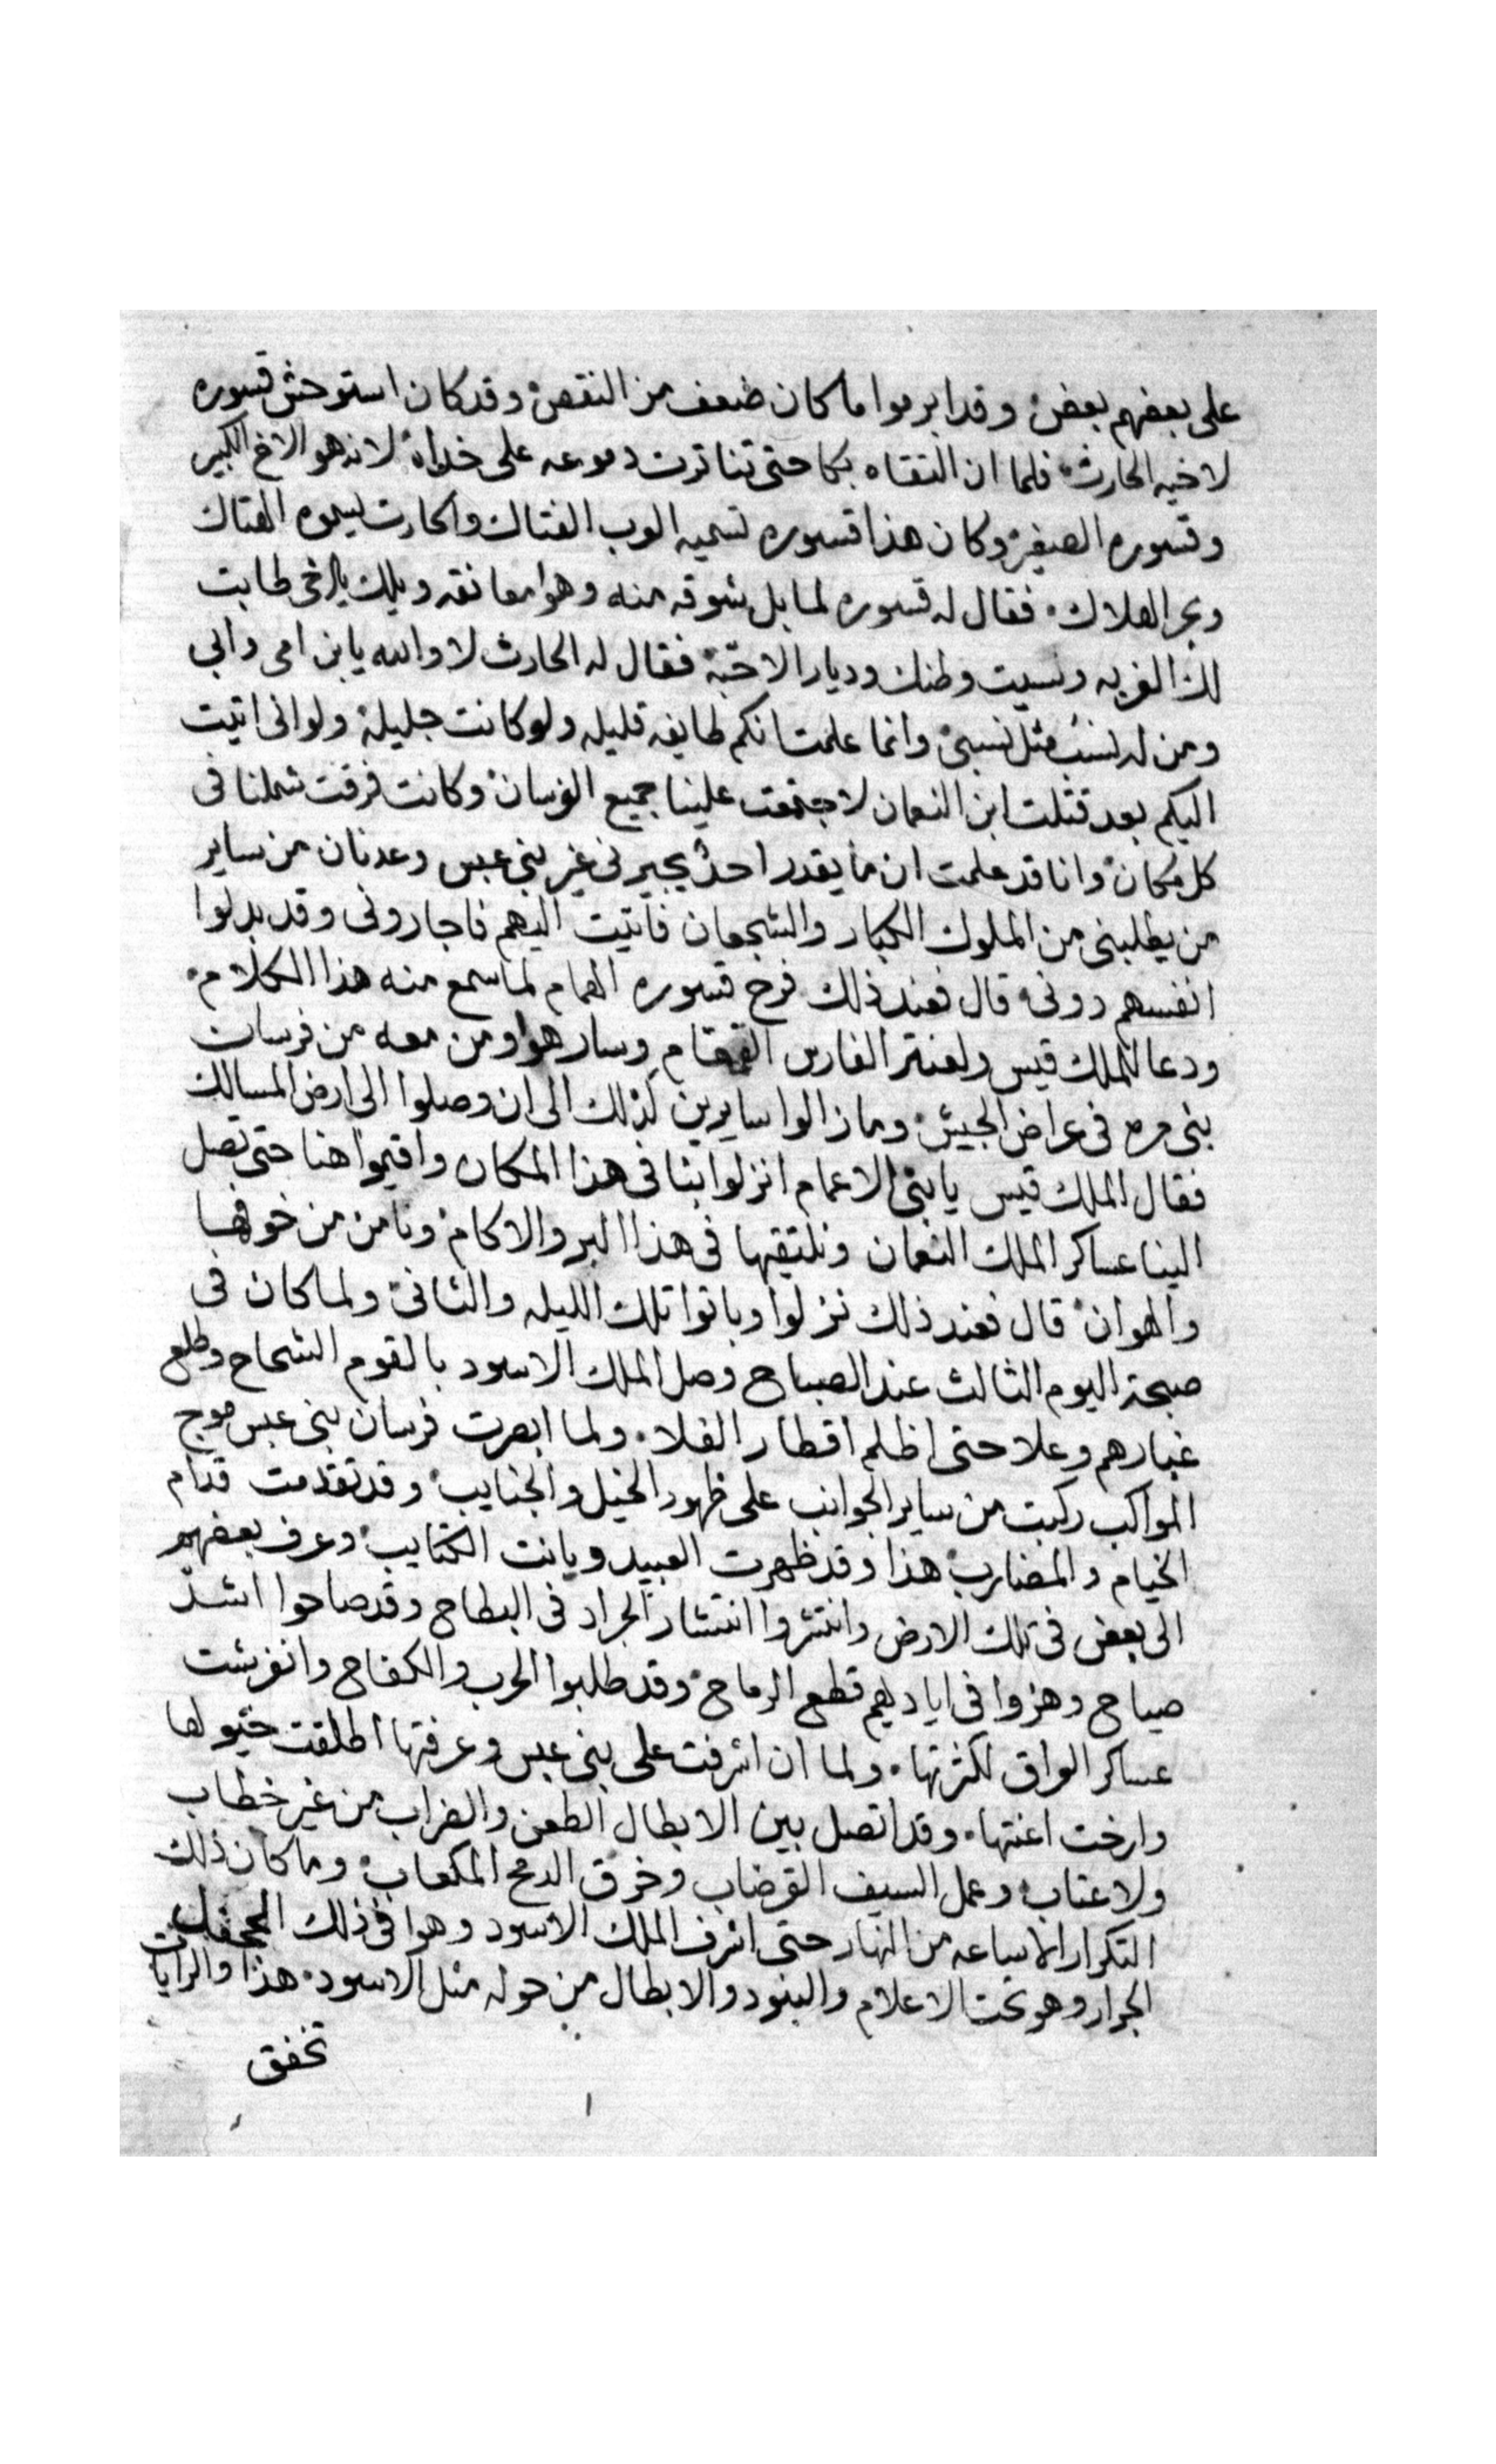 على بعضهم بعض وقد ابرموا ما كان ضعف من النقص وقد كان استوحش قسوره
لاخيه الحارث فلما ان التقاه بكا حتى تناترت دموعه على خداه لانه هو الاخ الكبير
وقسوره الصغير وكان هذا قسوره تسميه العرب الفتاك والحارت يسموه الهتاك
وبحر الهلاك فقال له قسوره لما بل شوقه منه وهوا معانقه ويلك يا اخى طابت
لك الغربه ونسيت وطنك وديار الاحبّة فقال له الحارث لا والله يابن امى وابى
ومن له نسب مثل نسبى وانما علمت انكم طايفه قليله ولو كانت جليلة ولو انى اتيت
اليكم بعد قتلت ابن النعمان لاجتمعت علينا جميع الفرسان وكانت فرقت شملنا فى
كل مكان وانا قد علمت ان ما يقدر احدٌ يجيرنى غير بنى عبس وعدنان من ساير
من يطلبنى من الملوك الكبار والشجعان فاتيت اليهم فاجارونى وقد بدلوا
انفسهم دونى قال فعند ذلك فرح قسوره الهمام لما سمع منه هذا الكلام
ودعا للملك قيس ولعنتر الفارس القمقام وسار هوا ومن معه من فرسان
بنى مره فى عراض الجيش وما زالوا سايرين كذلك الى ان وصلوا الى ارض المسالك
فقال الملك قيس يا بنى الاعمام انزلوا بنا فى هذا المكان واقيموا هنا حتى تصل
الينا عساكر الملك النعمان ونلتقيها فى هذا البر والاكام ونامن من خوفها
والهوان قال فعند ذلك نزلوا وباتوا تلك الليله والثانى ولما كان فى
صبحة اليوم الثالث عند الصباح وصل الملك الاسود بالقوم الشحاح وطلع
غبارهم وعلا حتى اظلم اقطار الفلا ولما ابصرت فرسان بنى عبس موج
المواكب ركبت من ساير الجوانب على ظهور الخيل والجنايب وقد تقدمت قدام
الخيام والمضارب هذا وقد ظهرت العبيد وبانت الكتايب وعرف بعضهم
الى بعض فى تلك الارض وانتشروا انتشار الجراد فى البطاح وقد صاحوا اشدّ
صياح وهزوا فى اياديهم قطع الرماح وقد طلبوا الحرب والكفاح وانفرشت
عساكر العراق لكثرتها ولما ان اشرفت على بنى عبس وعرفتها اطلقت خيولها
وارخت اعنتها وقد اتصل بين الابطال الطعن والضراب من غير خطاب
ولا عتاب وعمل السيف القرضاب وخرق الرمح المكعاب وما كان ذلك
التكرار الا ساعه من النهار حتى اشرف الملك الاسود وهوا فى ذلك الجحفل
الجرار وهو تحت الاعلام والبنود والابطال من حوله مثل الاسود هذا والرايات
تخفق